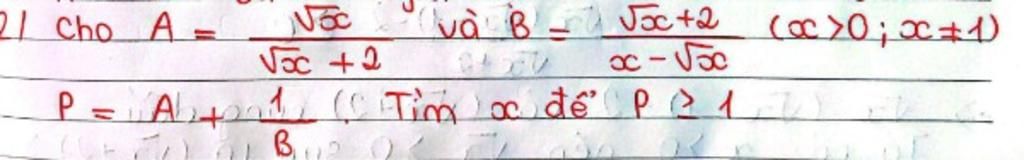 2/ Cho A = √x / (√x + 2) và B = (√x + 2) / (x - √x) (x > 0 ; x ≠ 1)
P = A + 1/B. Tìm x để P ≥ 1